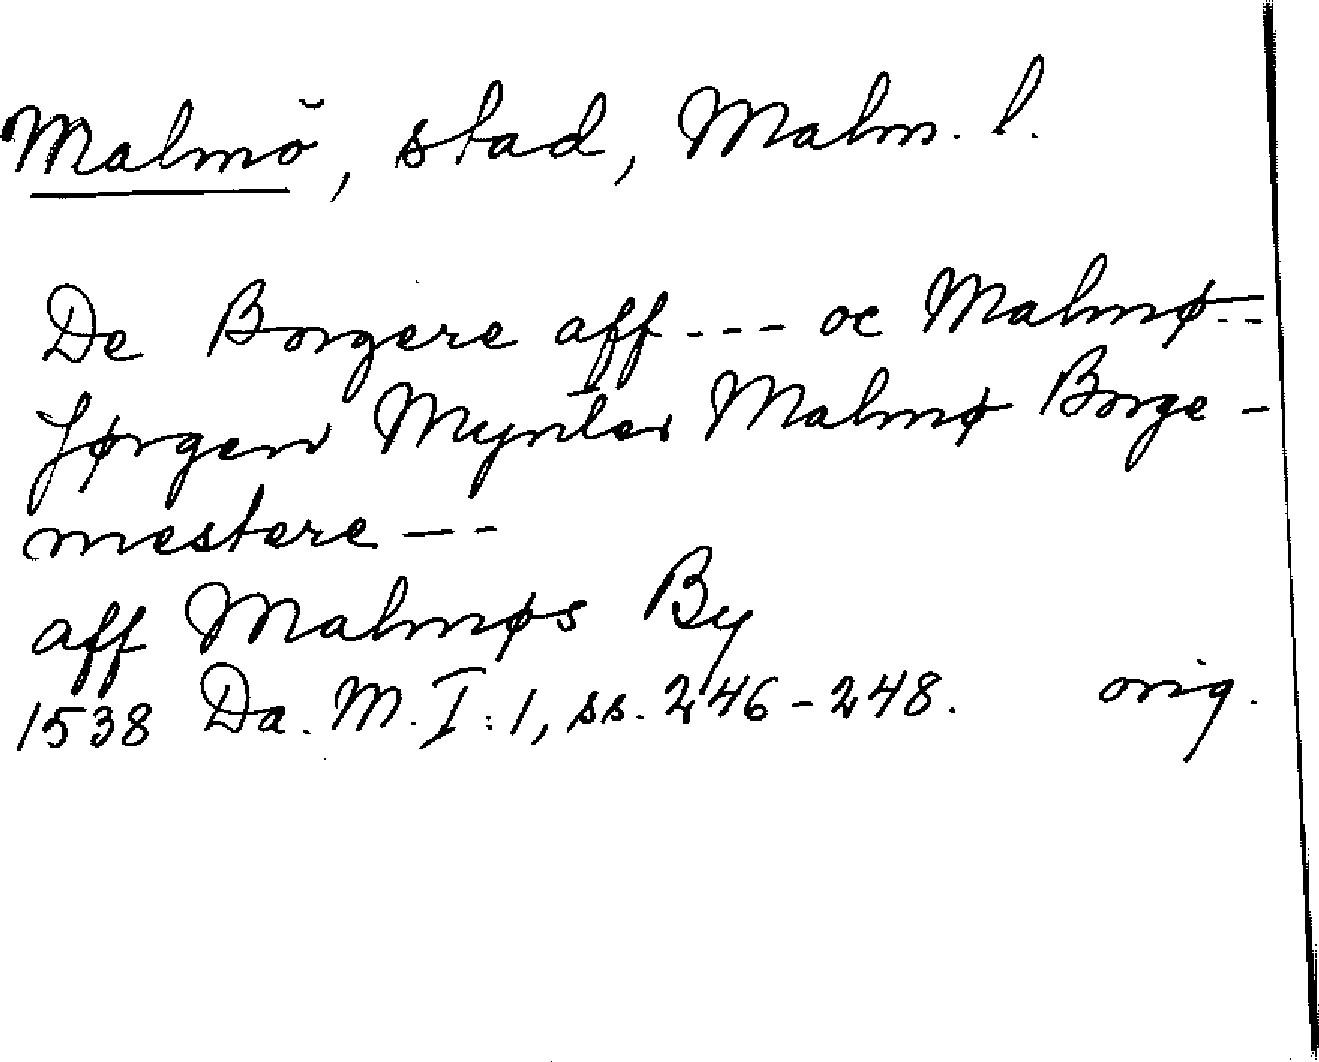 Malmö, stad, Malm. l.
De Borgere aff --- oc Malmø --
Jørgen Mynter Malmø Borge-
mestere ---
aff Malmøs By
1538 Da. M. I:1, ss. 246-248. orig.